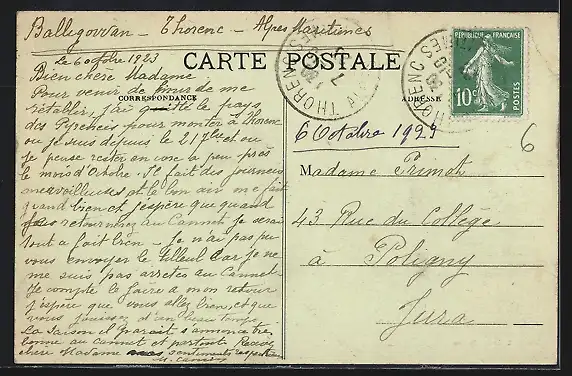 Ballegovvan - Thorenc - Alpes Maritimes
CARTE POSTALE
CORRESPONDANCE
ADRESSE
le 6 octobre 1923
Bien chère Madame
Pour venir de finir de me
rétablir, j'ai quitté le pays
des Pyrénées pour monter à Thorenc
ou je suis depuis le 21 7bre et ou
je pense rester encore a peu près
le mois d'Octobre. Il fait des journées
merveilleuses et le bon air me fait
grand bien et j'espère que quand
retournerez au Cannet je serai
tout a fait bien - Je n'ai pas pu
vous envoyer le tilleul car je ne
me suis pas arretée au Cannet
Je compte le faire a mon retour
J'espère que vous allez bien, et que
vous jouissez d'un beau temps.
La saison il parait s'annonce très
bonne au cannet et partout Recevez
chère Madame mes sentiments respectueux
RÉPUBLIQUE FRANÇAISE
10c
POSTES
THORENC
6 Octobre 1923
6
Madame Primot
43 Rue du Collège
à Poligny
Jura